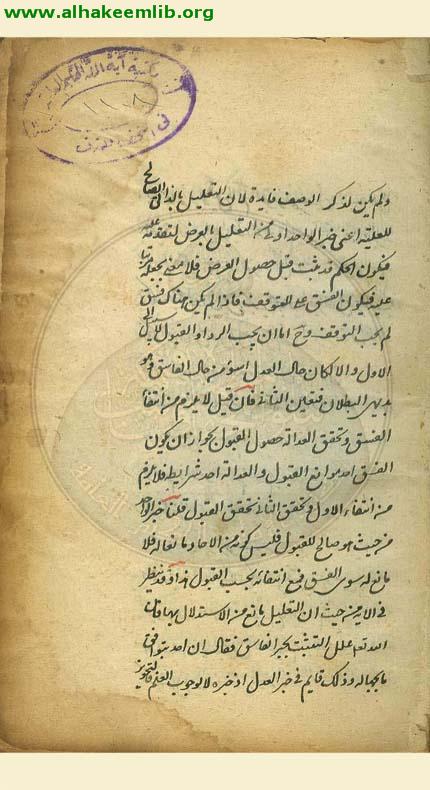 www.alhakeemlib.org
مكتبة آية الله الحكيم العامة
١١٠٨
في النجف الاشرف
ولم يكن لذكر الوصف فايدة لان التعليل بالذاتي الصالح
للعلية اعني خبر الواحد اولى من التعليل بالعرض لتقدمه عليه
فيكون الحكم قد ثبت قبل حصول العرض فلا معنى بجعله
عليه فيكون الفسق علة للتوقف فاذا لم يكن هناك فسق
لم يجب التوقف وح اما ان يجب الرد او القبول
الاول والا لكان حال العدل اسوء من حال الفاسق وهو
بديهي البطلان فتعين الثاني فان قيل لا يلزم من انتفاء
الفسق وتحقق العدالة حصول القبول لجواز ان يكون
الفسق احد موانع القبول والعدالة احد شرايطه فلا يلزم
من انتفاء الاول وتحقق الثاني تحقق القبول قلنا خبر الواحد
من حيث هو صالح للقبول فليس كونه من الآحاد مانعا له فلا
مانع له سوى الفسق فمع انتفائه يجب القبول هذا وقد ينظر
في الامر من حيث ان التعليل مانع من الاستدلال بها فان
الله تعالى علل التثبت بخبر الفاسق فقال ان
بالجهالة وذلك قايم في خبر العدل اذ خبره لا يوجب العلم